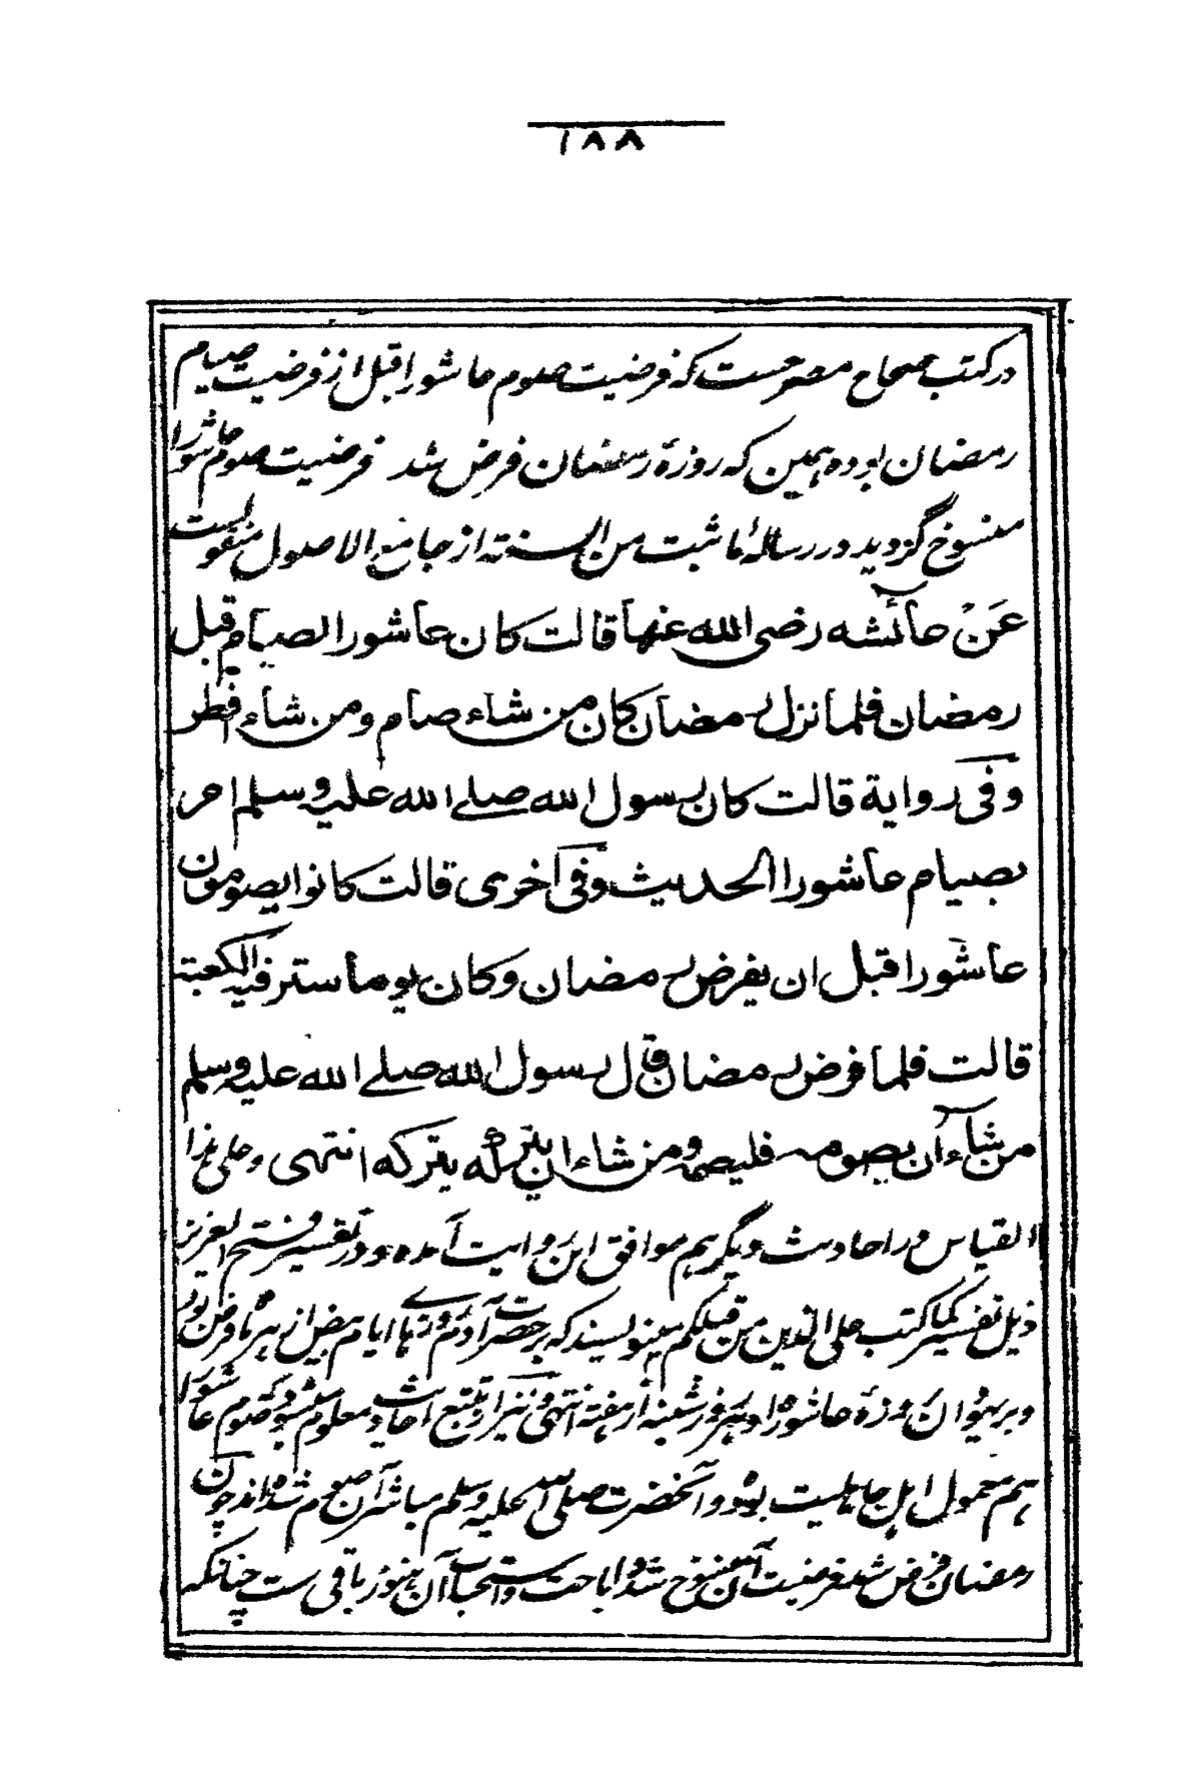 ۱۸۸
در کتب صحاح مصرحست که فرضیت صوم عاشورا قبل از فرضیت صیام
رمضان بوده همین که روزهٔ رمضان فرض شد فرضیت صوم عاشورا
منسوخ گردید در رسالهٔ ما ثبت من السنته از جامع الاصول منقولست
عَنْ عائشه رضی الله عنها قالت کان عاشورا الصیام قبل
رمضان فلما نزل رمضان کان من شاء صام ومن شاء فطر
وفی روایة قالت کان رسول الله صلے الله علیه وسلم امر
بصیام عاشورا الحدیث وفی اخری قالت کانوا یصومون
عاشورا قبل ان یفرض رمضان وکان یوما ستر فیه الکعبته
قالت فلما فرض رمضان قال رسول الله صلے الله علیه وسلم
من شاء ان یصومه فلیصمه ومن شاء ان یترکه یترکه انتهی وعلی هذا
القیاس در احادیث دیگر هم موافق این روایت آمده و در تفسیر فتح العزیز
ذیل تفسیر کما کتب علی الذین من قبلکم مینویسند که بر حضرت آدم روزهای ایام بیض از هر ماه فرض بود
و بر یهود آن روزهٔ عاشورا و هر روز شنبه از هفته انتهی و نیز از تتبع احادیث معلوم میشود که صوم عاشورا
هم معمول اهل جاهلیت بود و آنحضرت صلی الله علیه وسلم مباشر آن صوم شده اند چون
رمضان فرض شد فرضیت آن منسوخ شد و اباحت و استحباب آن هنوز باقی ست چنانکه